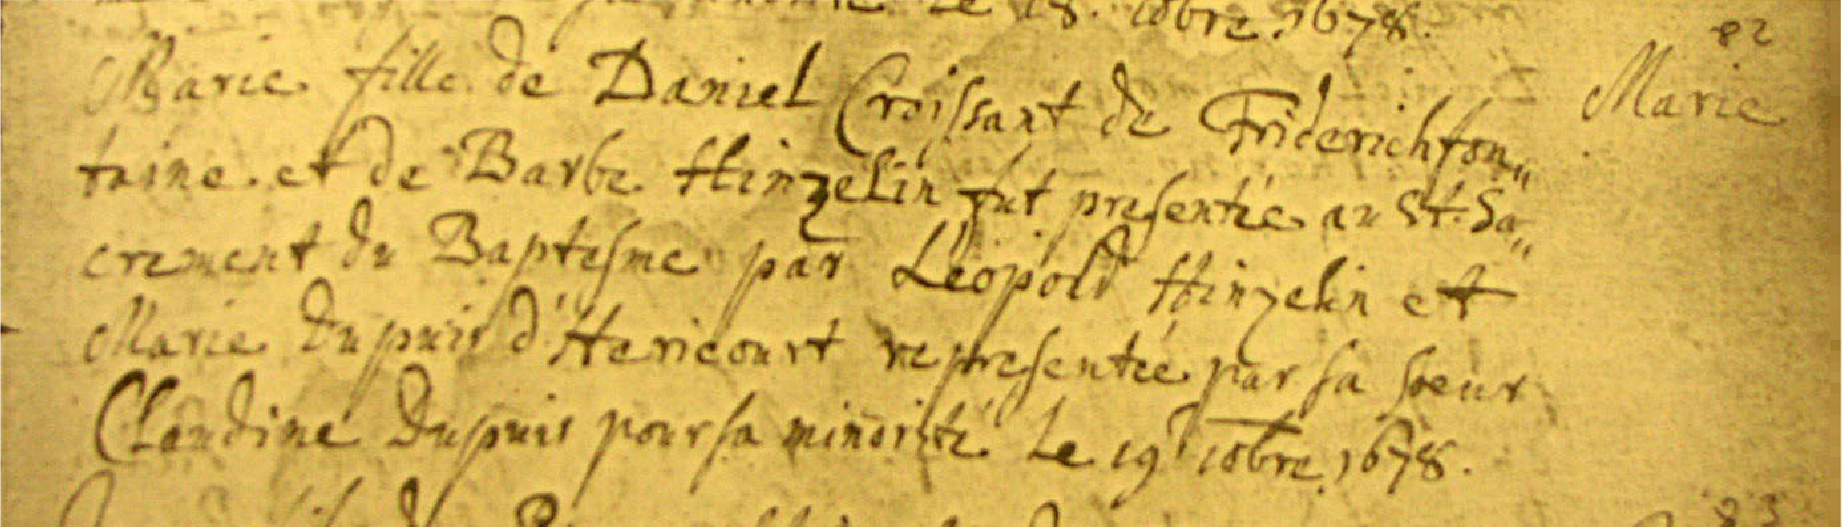 Le 18. 10bre 1678.
82
Marie fille de Daniel Croissant de Friderichfon„
Marie
taine et de Barbe Hinzelin fut presentée au St. Sa„
crement du Baptesme par Léopold Hinzelin et
Marie Dupuis d'Hericourt representée par sa sœur
Claudine Dupuis pour sa minorité Le 19e 10bre 1678.
83